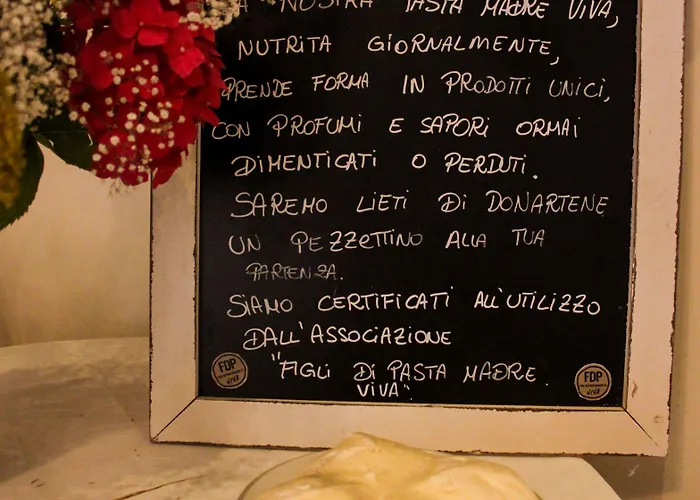 A NOSTRA PASTA MADRE VIVA,
NUTRITA GIORNALMENTE,
PRENDE FORMA IN PRODOTTI UNICI,
CON PROFUMI E SAPORI ORMAI
DIMENTICATI O PERDUTI.
SAREMO LIETI DI DONARTENE
UN PEZZETTINO ALLA TUA
PARTENZA.
SIAMO CERTIFICATI ALL'UTILIZZO
DALL'ASSOCIAZIONE
"FIGLI DI PASTA MADRE
VIVA".
FDP
viva
FDP
viva